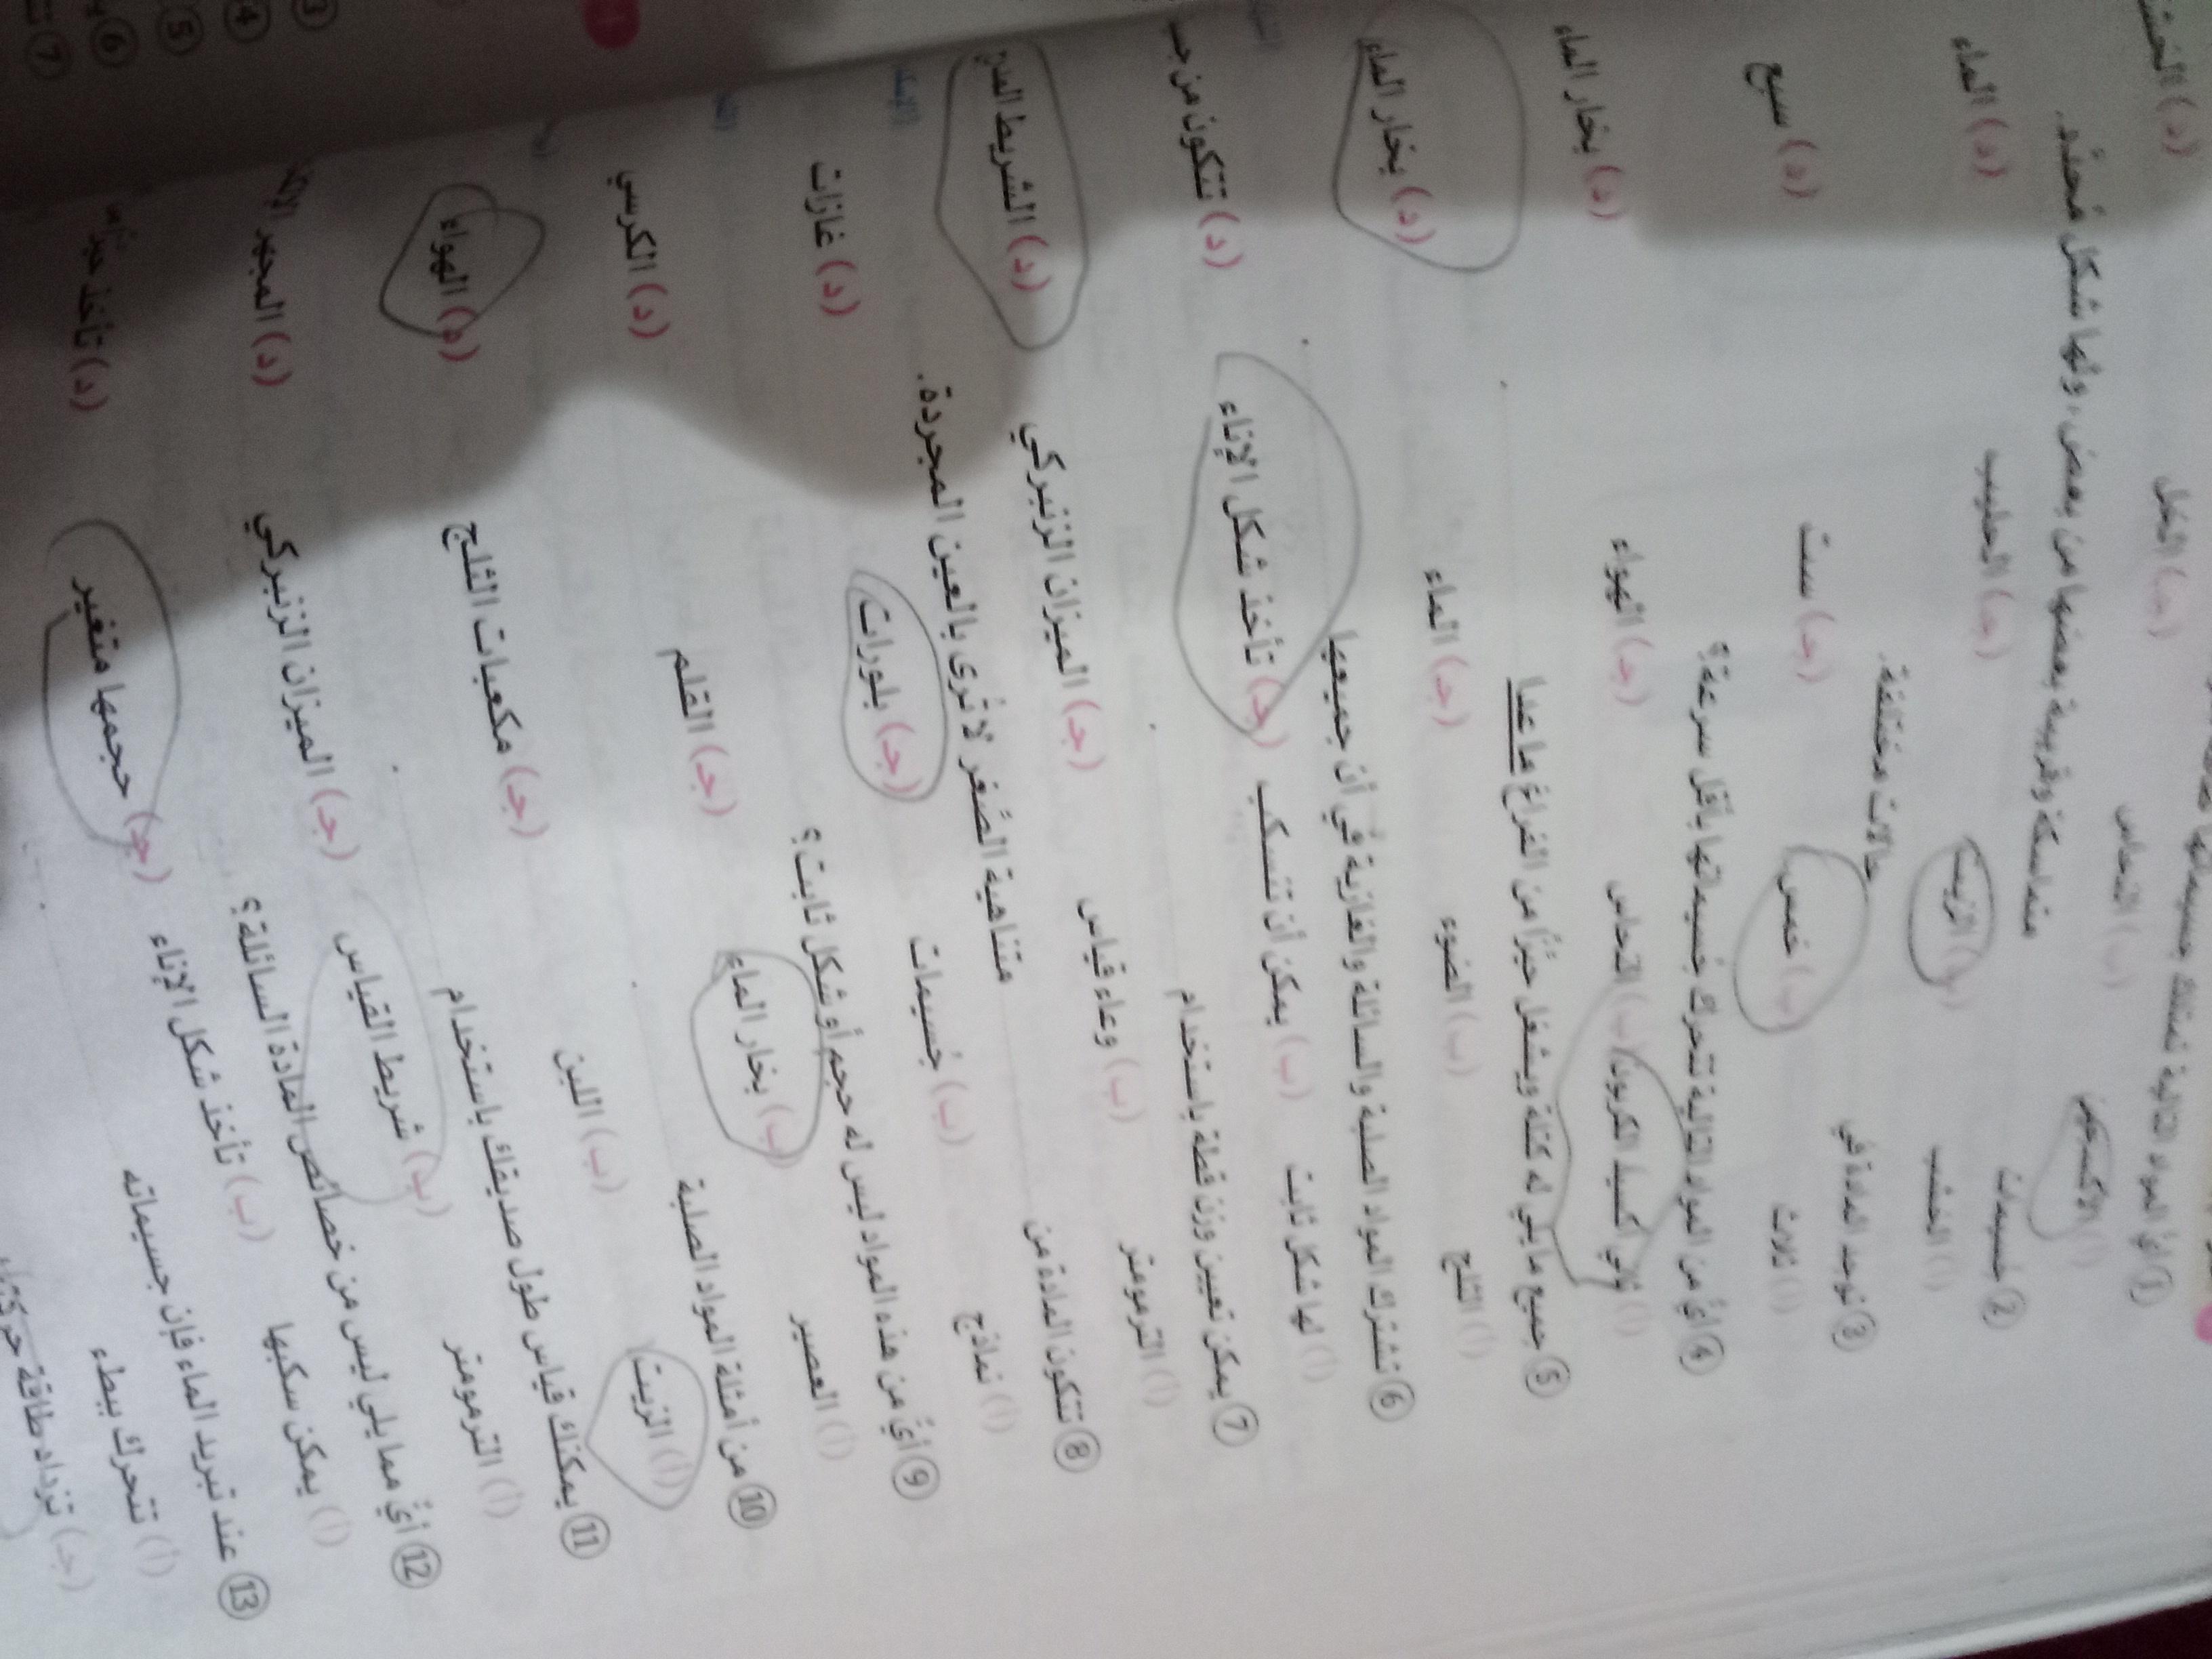 ① أيُّ المواد التالية تمتلك جسيماتها
(أ) الأكسجين (ب) النحاس (جـ) الخل (د)
② جسيمات متماسكة وقريبة بعضها من بعض، ولها شكل مُحدَّد.
(أ) الخشب (ب) الزيت (جـ) الحليب (د) الماء
③ توجد المادة في حالات مختلفة.
(أ) ثلاث (ب) خمس (جـ) ست (د) سبع
④ أيٌّ من المواد التالية تتحرك جُسيماتها بأقل سرعة؟
(أ) ثاني أكسيد الكربون (ب) النحاس (جـ) الهواء (د) بخار الماء
⑤ جميع ما يلي له كتلة ويشغل حيِّزًا من الفراغ ما عدا
(أ) الثلج (ب) الضوء (جـ) الماء (د) بخار الماء
⑥ تشترك المواد الصلبة والسائلة والغازية في أن جميعها
(أ) لها شكل ثابت (ب) يمكن أن تنسكب (جـ) تأخذ شكل الإناء (د) تتكون من
⑦ يمكن تعيين وزن قطة باستخدام
(أ) الترمومتر (ب) وعاء قياس (جـ) الميزان الزنبركي (د) الشريط
⑧ تتكون المادة من متناهية الصِّغر لا تُرى بالعين المجردة.
(أ) نماذج (ب) جُسيمات (جـ) بلورات (د) غازات
⑨ أيٌّ من هذه المواد ليس له حجم أو شكل ثابت؟
(أ) العصير (ب) بخار الماء (جـ) القلم (د) الكرسي
⑩ من أمثلة المواد الصلبة
(أ) الزيت (ب) اللبن (جـ) مكعبات الثلج (د) الهواء
⑪ يمكنك قياس طول صديقك باستخدام
(أ) الترمومتر (ب) شريط القياس (جـ) الميزان الزنبركي (د) المجهر
⑫ أيٌّ مما يلي ليس من خصائص المادة السائلة؟
(أ) يمكن سكبها (ب) تأخذ شكل الإناء (جـ) حجمها متغير (د) تأخذ
⑬ عند تبريد الماء فإن جسيماته
(أ) تتحرك ببطء
(جـ) تزداد طاقة
③
④
⑤
⑥
⑦